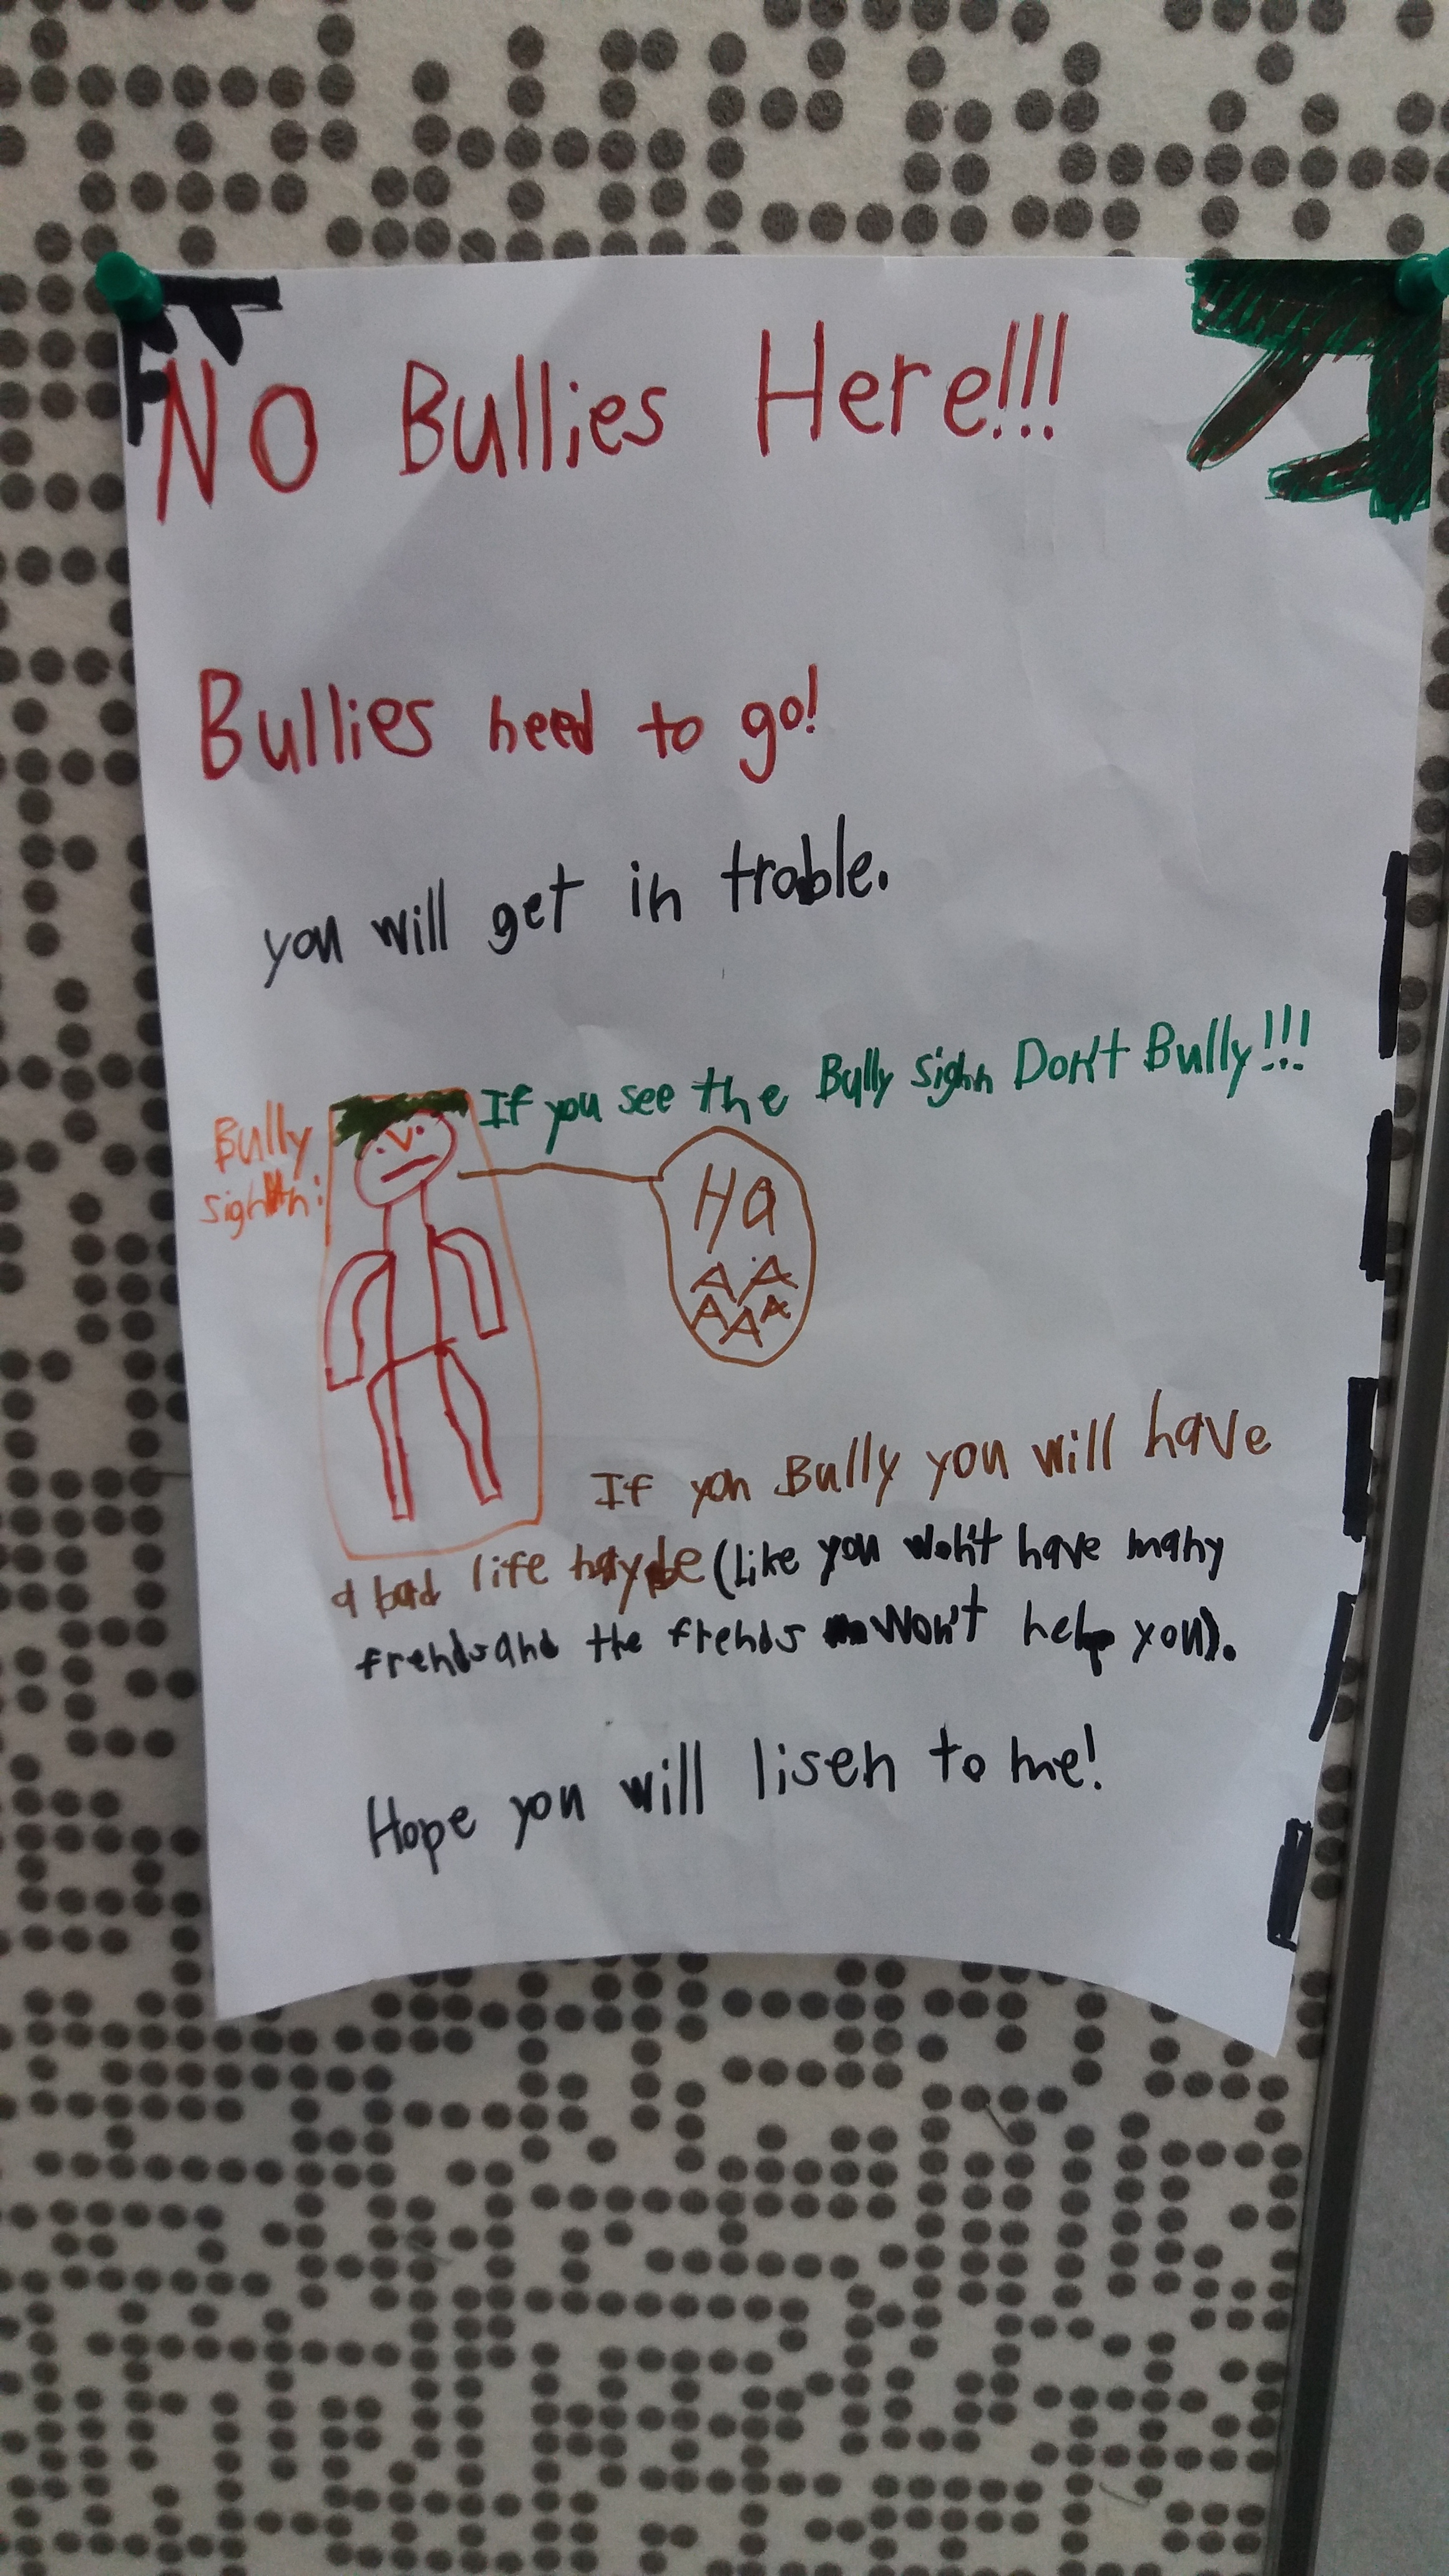 No Bullies Here!!!
Bullies need to go!
you will get in trable.
If you see the Bully sighn Don't Bully!!!
Bully
sighn:
HA
AA
AAA
If you Bully you will have
a bad life maybe (like you won't have many
frends and the frends won't help you).
Hope you will lisen to me!